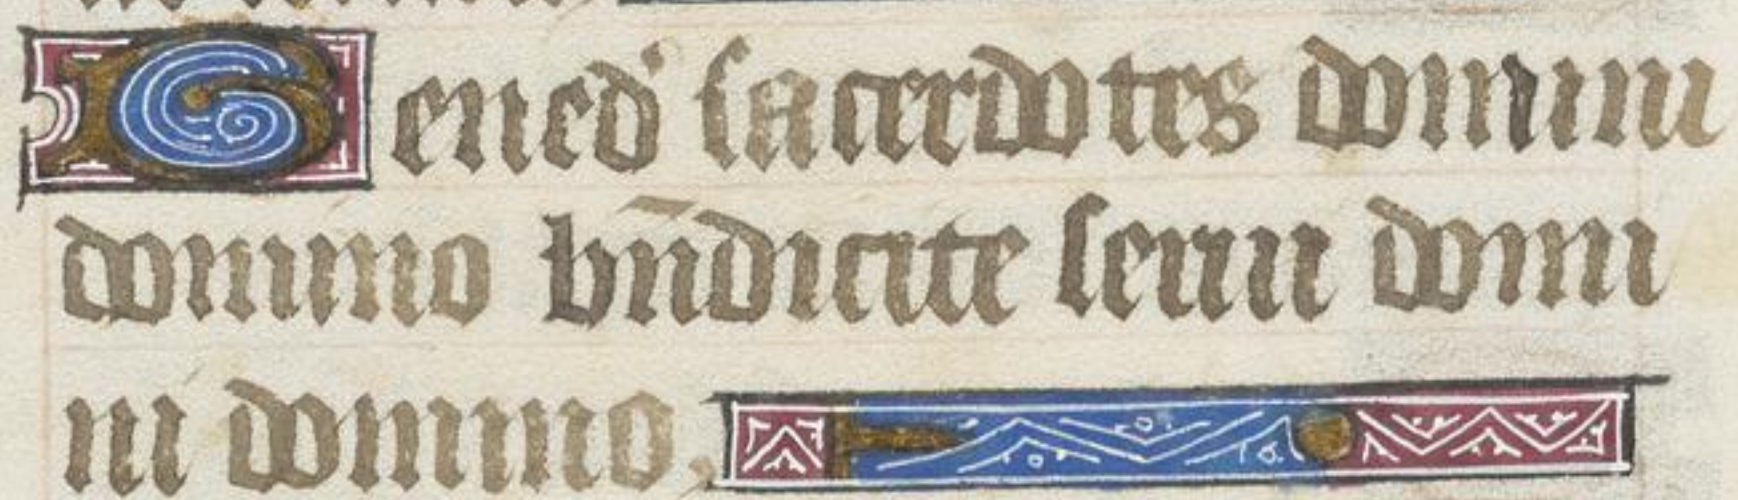 Bened' sacerdotes domini
domino bn̄dicite serui domi
ni domino.